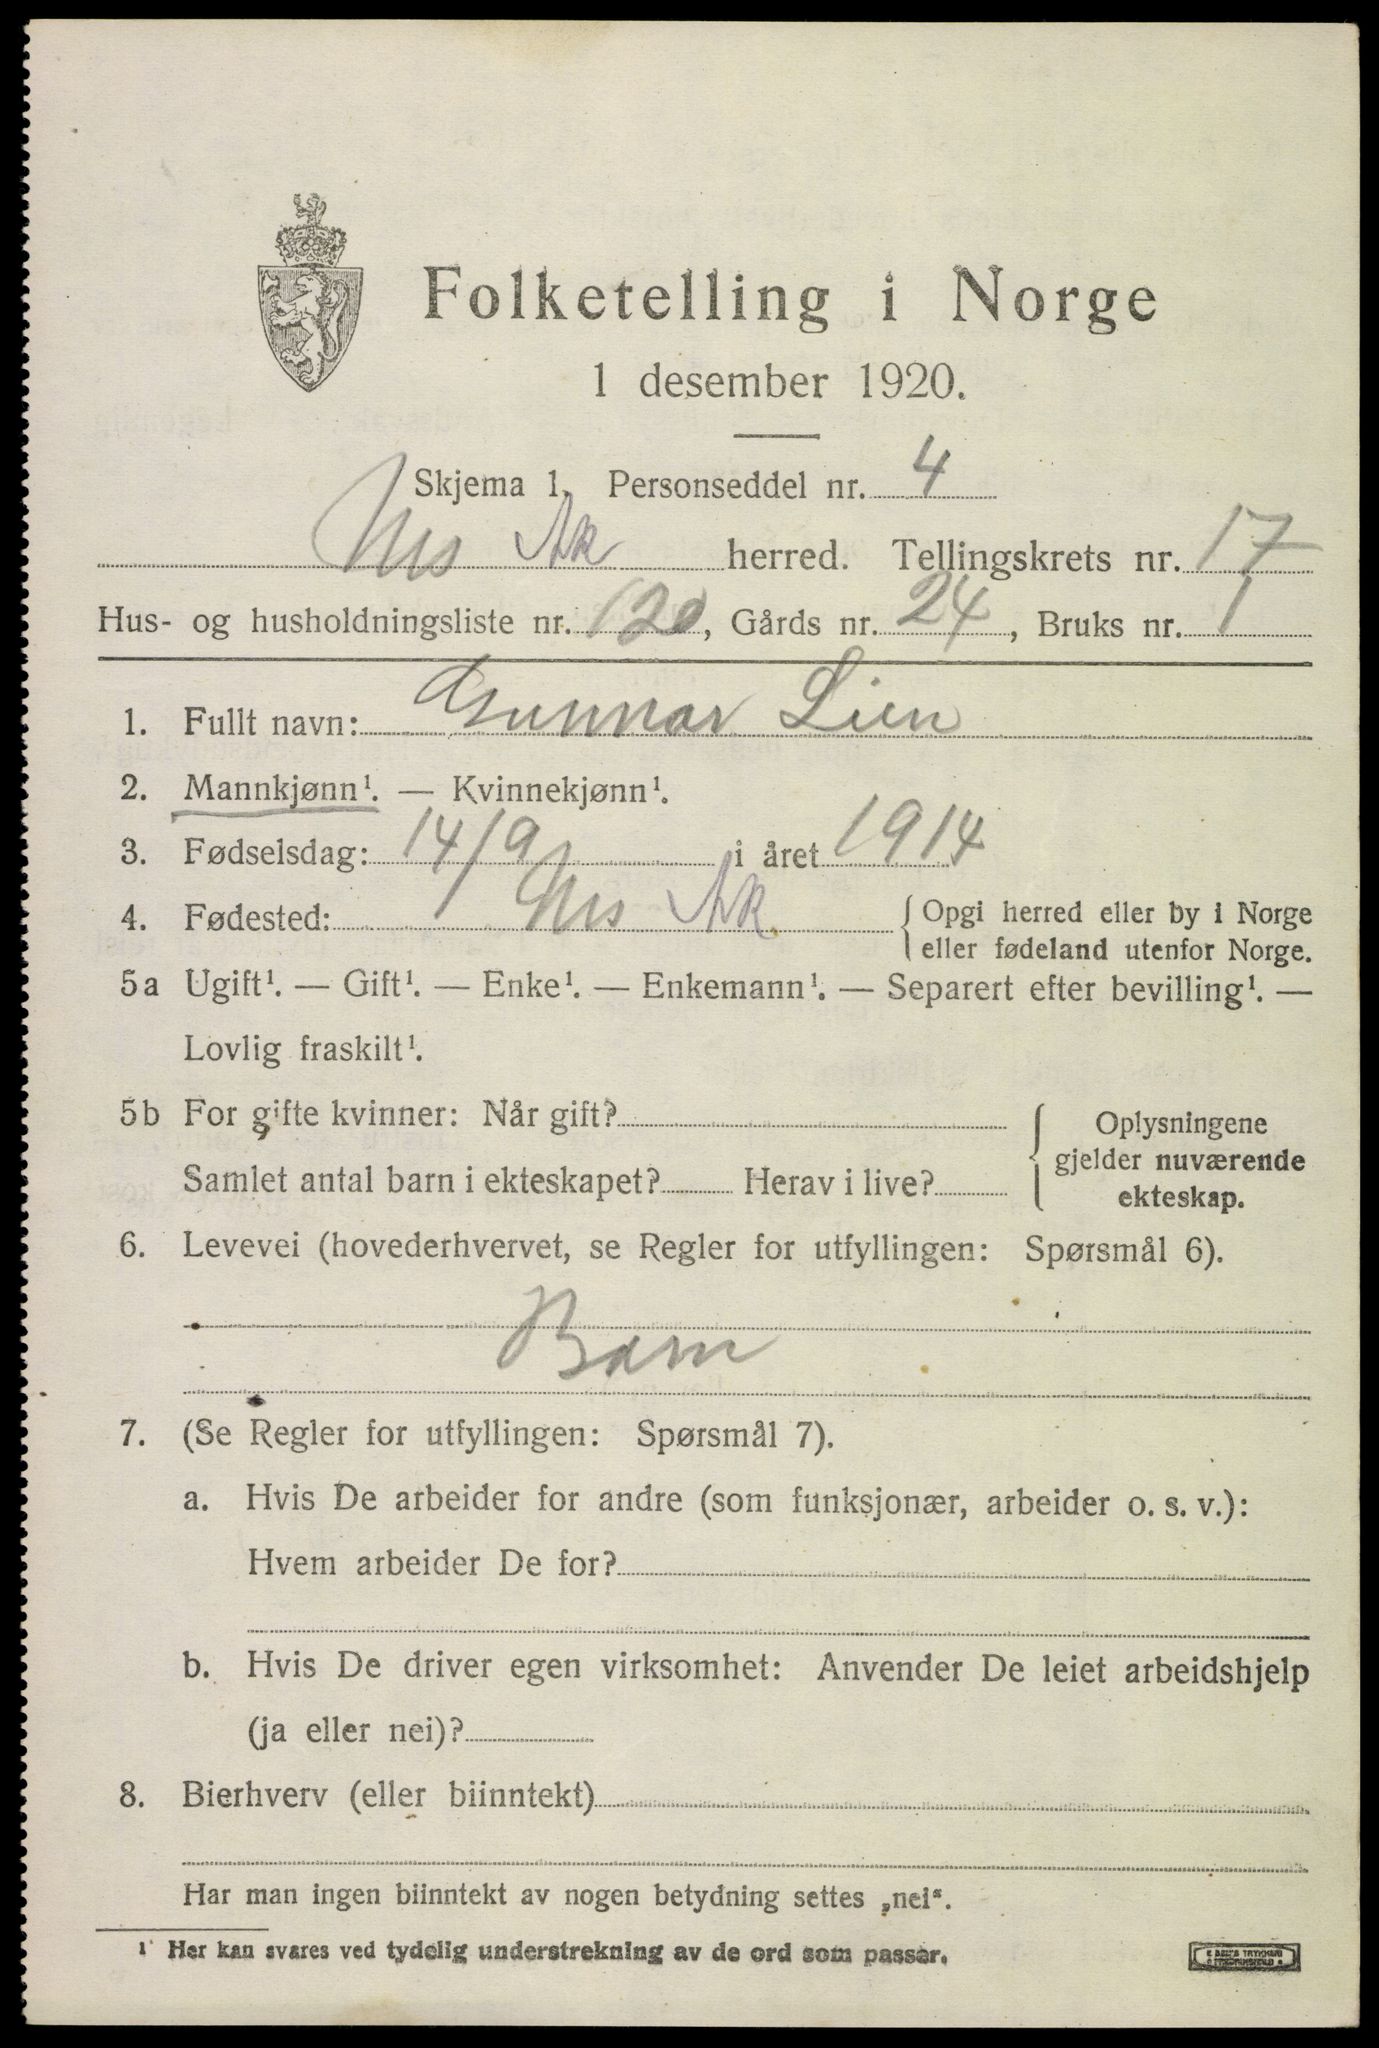 Folketelling i Norge
1 desember 1920.
Skjema 1. Personseddel nr. 4
Nes Ak herred. Tellingskrets nr. 17
Hus- og husholdningsliste nr. 120, Gårds nr. 24, Bruks nr. 1
1. Fullt navn: Gunnar Lien
2. Mannkjønn¹. — Kvinnekjønn¹.
3. Fødselsdag: 14/9 i året 1914
4. Fødested: Nes Ak { Opgi herred eller by i Norge
eller fødeland utenfor Norge.
5a Ugift¹. — Gift¹. — Enke¹. — Enkemann¹. — Separert efter bevilling¹. —
Lovlig fraskilt¹.
5b For gifte kvinner: Når gift? { Oplysningene
gjelder nuværende
Samlet antal barn i ekteskapet? Herav i live? ekteskap.
6. Levevei (hovederhvervet, se Regler for utfyllingen: Spørsmål 6).
Barn
7. (Se Regler for utfyllingen: Spørsmål 7).
a. Hvis De arbeider for andre (som funksjonær, arbeider o. s. v.):
Hvem arbeider De for?
b. Hvis De driver egen virksomhet: Anvender De leiet arbeidshjelp
(ja eller nei)?
8. Bierhverv (eller biinntekt)
Har man ingen biinntekt av nogen betydning settes „nei“.
¹ Her kan svares ved tydelig understrekning av de ord som passer.